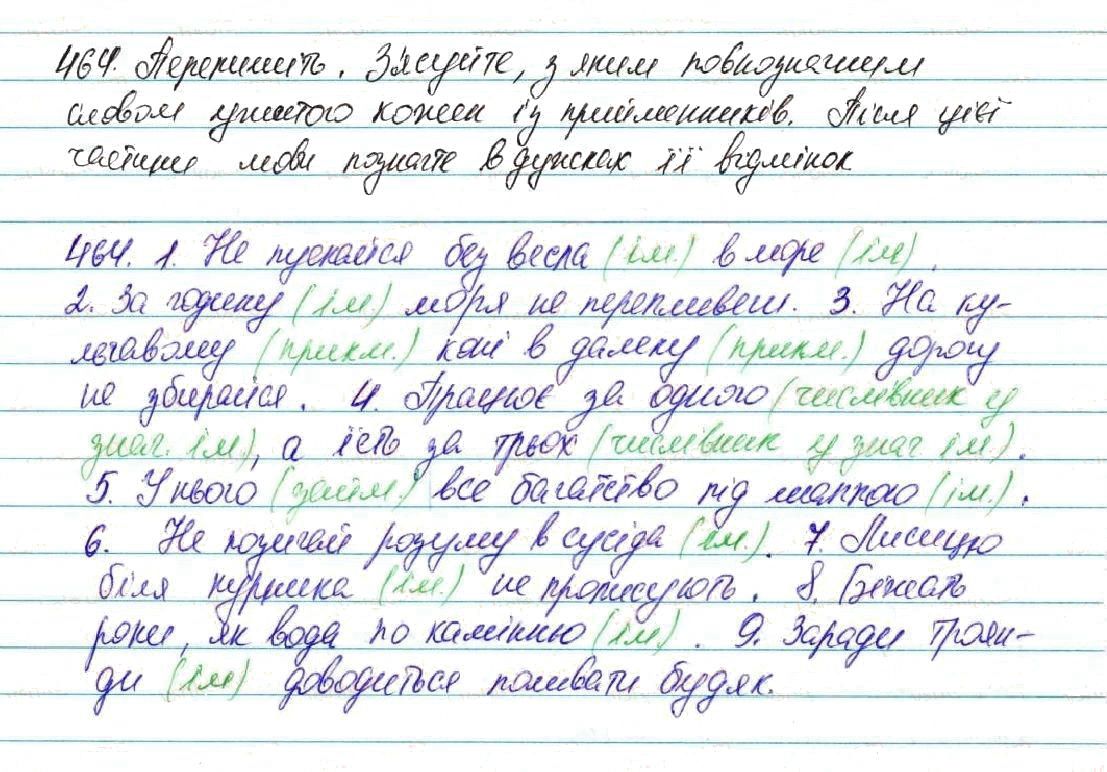 464. Перепишіть. З'ясуйте, з яким повнозначним
словом ужитого кожен із прийменників. Після цієї
частини мови позначте в дужках її відмінок
464. 1. Не пускайся без весла (ім.) в море (ім).
2. За годину (ім.) моря не перепливеш. 3. На ку-
льгавому (прикм.) коні в далеку (прикм.) дорогу
не збирайся. 4. Працює за одного (числівник у
знач. ім.), а їсть за трьох (числівник у знач ім.).
5. У нього (займ.) все багатство під шапкою (ім.).
6. Не позичай розуму в сусіда (ім.). 7. Лисицю
біля курника (ім.) не прописують. 8. Біжать
роки, як вода по камінню (ім). 9. Заради троян-
ди (ім) доводиться поливати будяк.